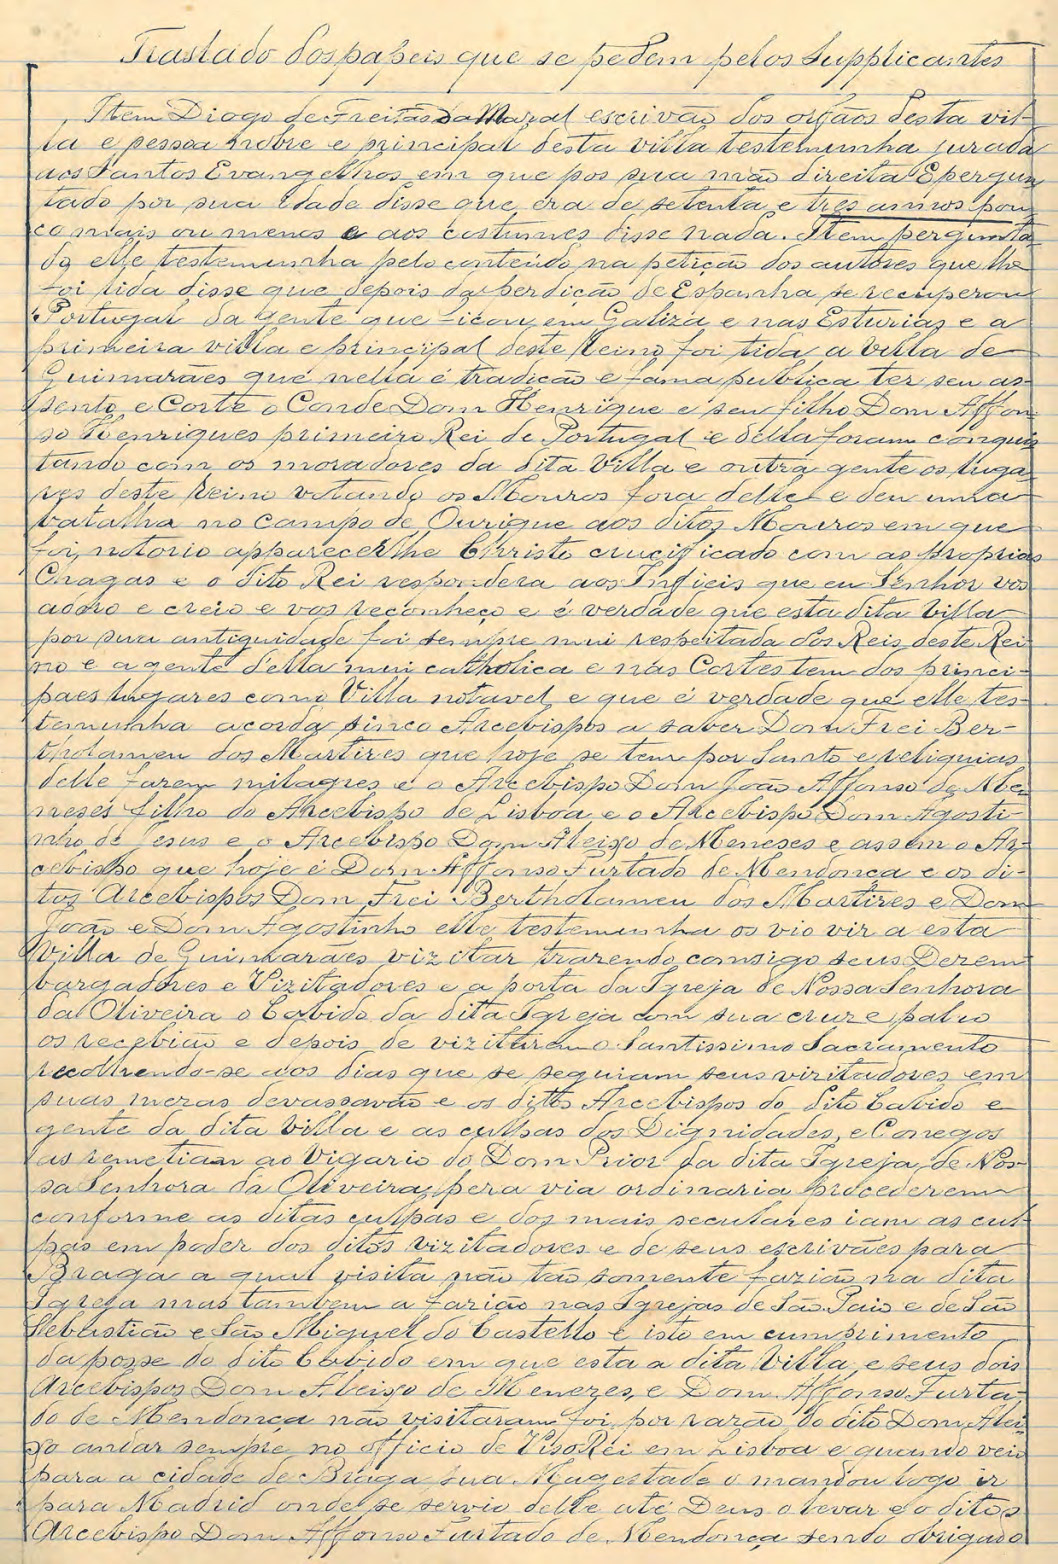 Traslado dos papeis que se pedem pelos Supplicantes
Item Diogo de Freitas da Maral escrivão dos orfãos desta vil-
la e pessoa nobre e principal desta villa testemunha jurada
aos Santos Evangelhos em que pos sua mão direita E pergun
tado por sua idade disse que era de setenta e tres annos pou
co mais ou menos e aos costumes disse nada. Item pergunta
do elle testemunha pelo conteúdo na petição dos autores que lhe
foi lida disse que depois da perdição de Espanha se recuperou
Portugal da gente que ficou em Galiza e nas Esturias e a
primeira villa e principal deste Reino foi tida a Villa de
Guimarães que nella é tradicão e fama publica ter seu as-
sento e Corte o Conde Dom Henrique e seu filho Dom Affon
so Henriques primeiro Rei de Portugal e della foram conquis
tando com os moradores da dita Villa e outra gente os luga
res deste Reino votando os Mouros fora delle e deu uma
batalha no campo de Ourique aos ditos Mouros em que
foi notorio apparecer lhe Christo crucificado com as proprias
Chagas e o dito Rei respondera aos Infieis que eu Senhor vos
adoro e creio e vos reconheço e é verdade que esta dita Villa
por sua antiguidade foi sempre mui respeitada dos Reis deste Rei
no e a gente della mui catholica e nas Cortes tem dos princi-
paes lugares como Villa notavel e que é verdade que elle tes-
temunha acorda sinco Arcebispos a saber Dom Frei Ber-
tholameu dos Martires que hoje se tem por Santo e reliquias
delle fazem milagres e o Arcebispo Dom João Affonso de Me
neses filho do Arcebispo de Lisboa e o Arcebispo Dom Agosti
nho de Jesus e o Arcebispo Dom Aleixo de Meneses e assim o Ar-
cebispo que hoje é Dom Affonso Furtado de Mendonça e os di-
tos Arcebispos Dom Frei Bertholameu dos Martires e Dom
João e Dom Agostinho elle testemunha os vio vir a esta
Villa de Guimarães vizitar trazendo comsigo seus Dezem
bargadores e Vizitadores e a porta da Igreja de Nossa Senhora
da Oliveira o Cabido da dita Igreja com sua cruz e palio
os recebião e depois de vizitarem o Santissimo Sacramento
recolhendo-se aos dias que se seguiam seus vizitadores em
suas mezas devassavão e os dittos Arcebispos do dito Cabido e
gente da dita Villa e as culpas dos Dignidades, e Conegos
as remetiam ao Vigario do Dom Prior da dita Igreja de Nos-
sa Senhora da Oliveira pera via ordinaria procederem
conforme as ditas culpas e dos mais seculares iam as cul-
pas em poder dos ditos vizitadores e de seus escrivães para
Braga a qual visita não tão somente fazião na dita
Igreja mas tambem a fazião nas Igrejas de São Paio e de São
Sebastião e São Miguel do Castello e isto em cumprimento
da posse do dito Cabido em que esta a dita Villa, e seus dois
Arcebispos Dom Aleixo de Menezes, e Dom Affonso Furta-
do de Mendonça não visitaram foi por razão do dito Dom Alei-
xo andar sempre no officio de Viso Rei em Lisboa e quando veio
para a cidade de Braga sua Magestade o mandou logo ir
para Madrid onde se servio delle até Deus o levar e o dito
Arcebispo Dom Affonso Furtado de Mendonça sendo obrigado